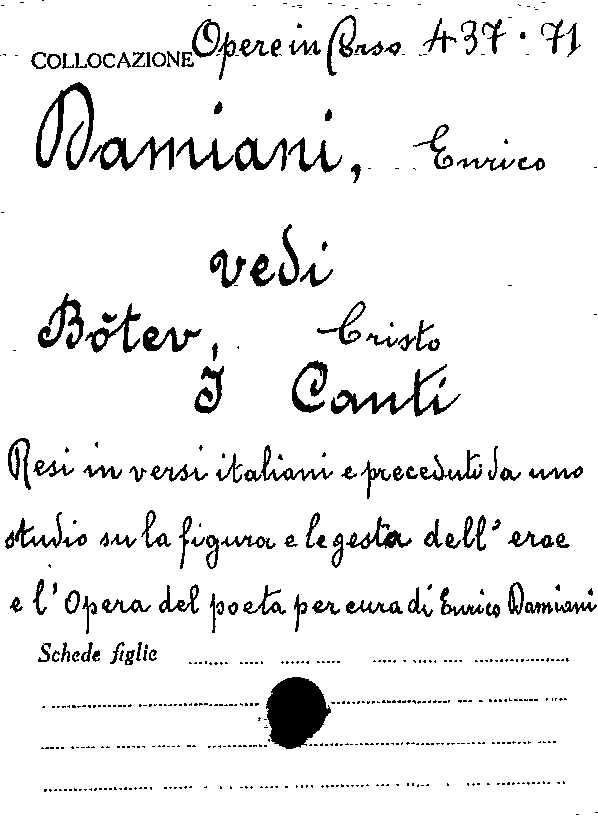 COLLOCAZIONE Opere in Corso 437·71
Damiani, Enrico
vedi
Bŏtev, Cristo
I Canti
Resi in versi italiani e preceduti da uno
studio su la figura e le gesta dell' eroe
e l'Opera del poeta per cura di Enrico Damiani
Schede figlie